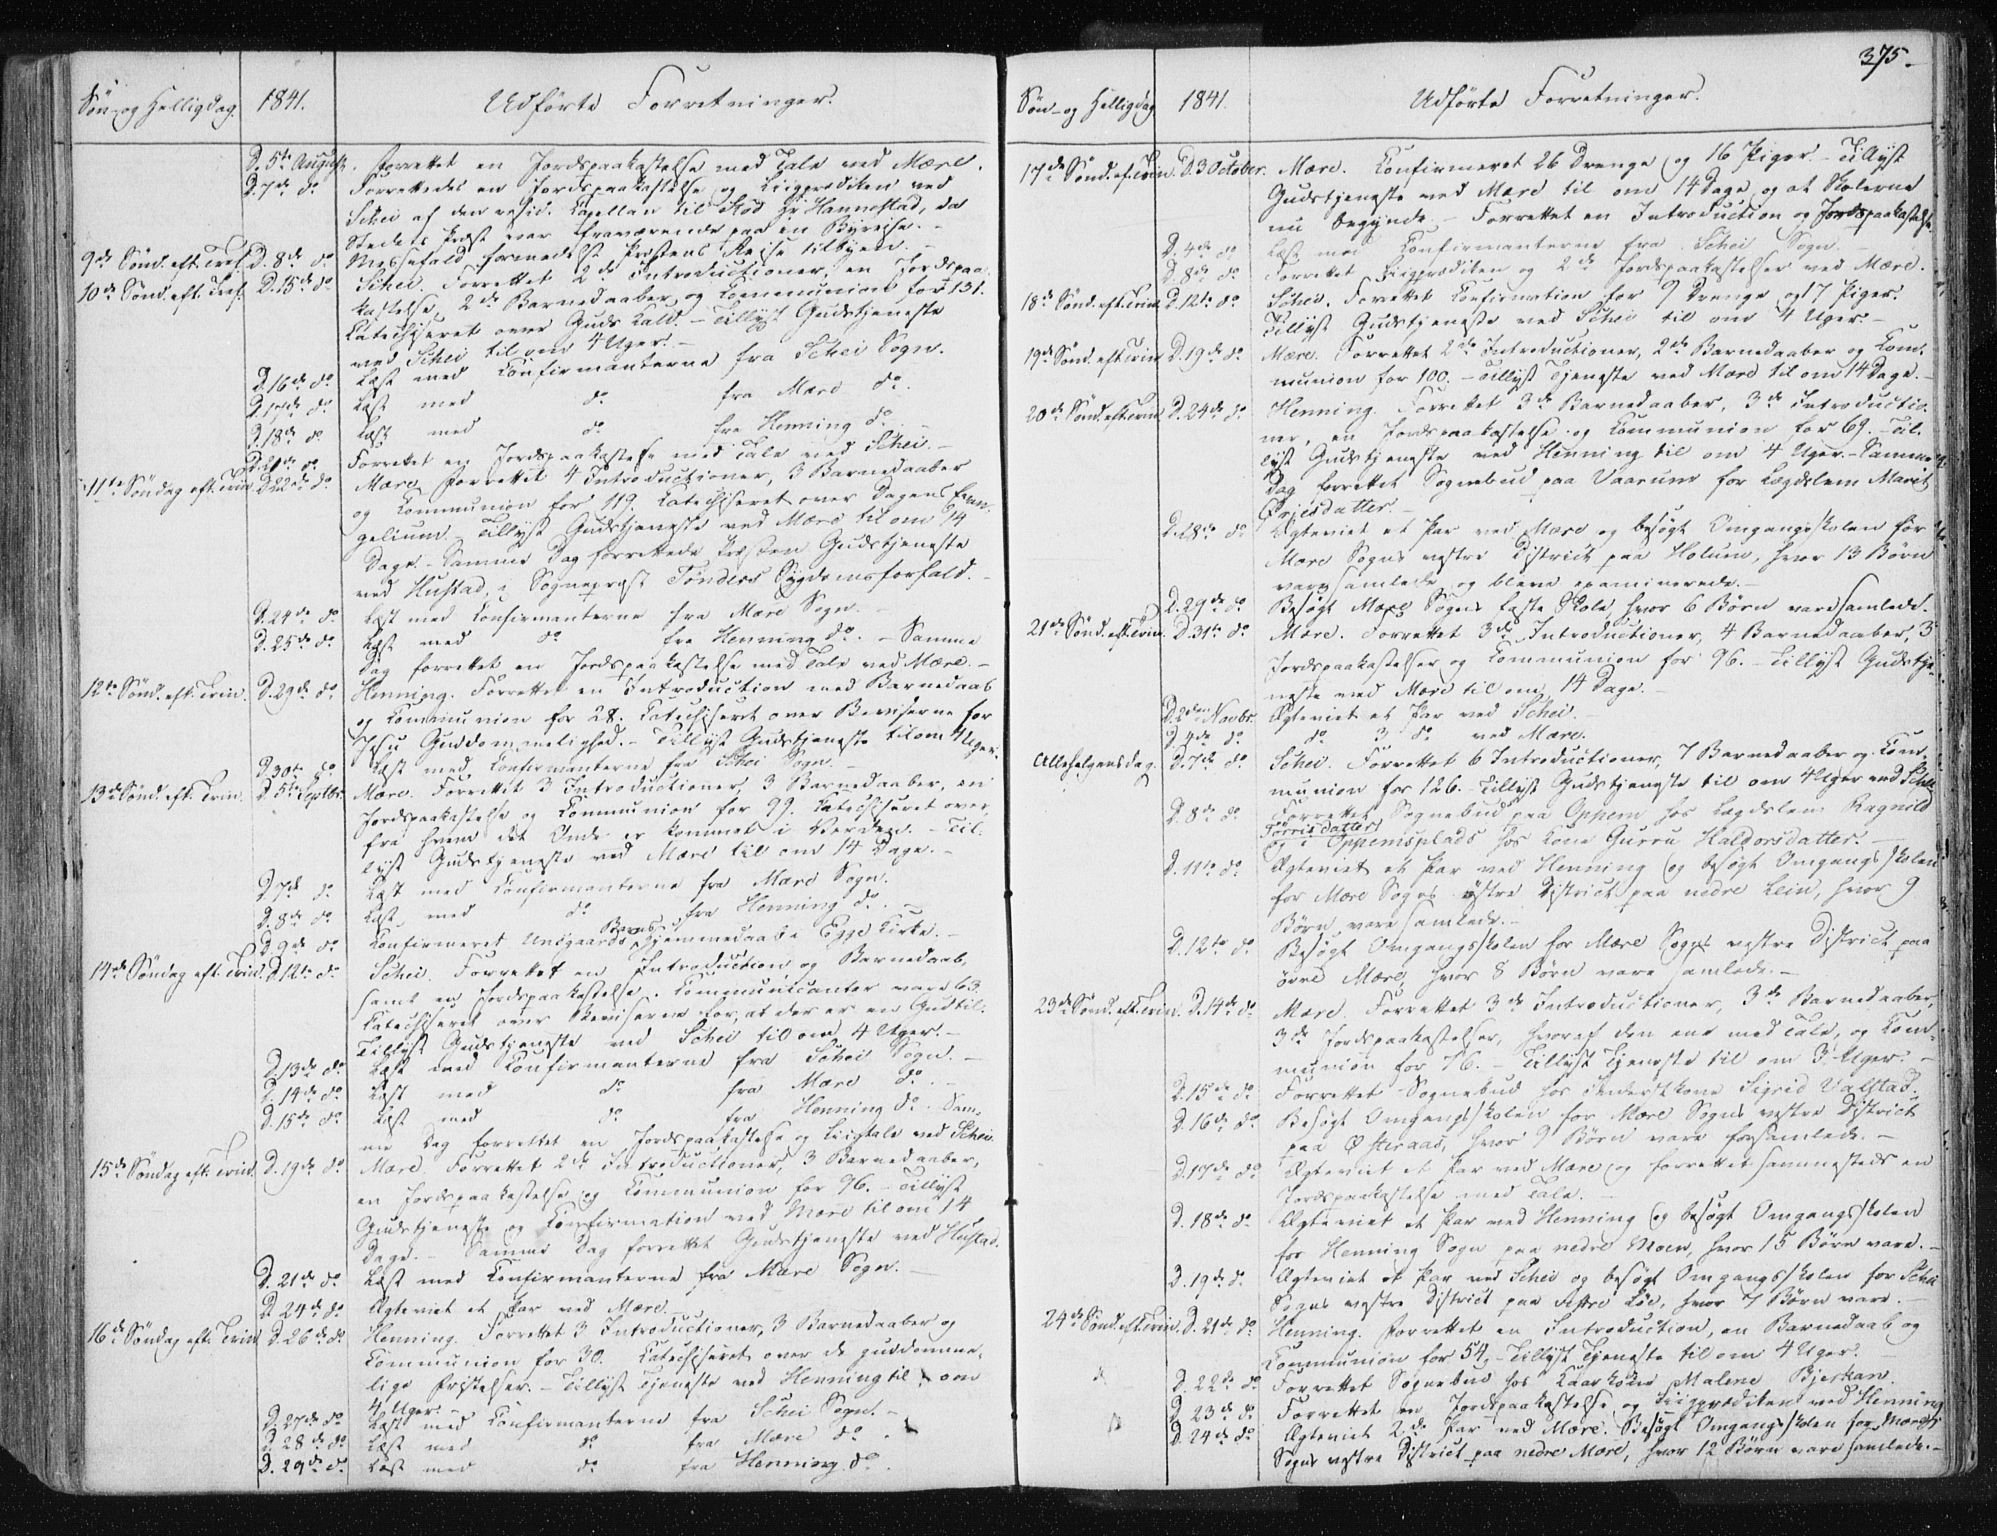 375.
Søn- og Helligdag. 1841. Udførte Forretninger.
D. 5te August. Forrettet en Jordspaakastelse med Tale ved Mære.
D. 7de do Forrettedes en Jordspaakastelse og Liigprædiken ved
Schei af den resid. Capellan til Stod Hr Hannestad, da
Stedets Præst var fraværende paa en Byreise.
9de Sønd. eft. Tref. D. 8de do Messefald formedelst Præstens Reise til Byen.
10de Sønd. eft. Tref. D. 15de do Schei. Forrettet 2de Introductioner, en Jordspaa-
kastelse, 2de Barnedaaber og Communion for 131.
Catechiseret over Guds Kald. - Tillyst Gudstjeneste
ved Schei til om 4 Uger. -
D. 16de do Læst med Confirmanterne fra Schei Sogn.
D. 17de do Læst med do fra Mære do.
D. 18de do Læst med do fra Henning do.
D. 21de do Forrettet en Jordspaakastelse med Tale ved Schei. -
11te Søndag eft. Trin. D. 22de do Mære. Forrettet 4 Introductioner, 3 Barnedaaber
og Communion for 119. Catechiseret over Dagens Evan-
gelium. Tillyst Gudstjeneste ved Mære til om 14
Dage. - Samme Dag forrettede Præsten Gudstjeneste
ved Hustad, i Sognepræst Tønders Sygdomsforfald. -
D. 24de do Læst med Confirmanterne fra Mære Sogn. -
D. 25de do Læst med do fra Henning do. - Samme
Dag forrettet en Jordspaakastelse med Tale ved Mære. -
12te Sønd. eft. Trin. D. 29de do Henning. Forrettet en Introduction med Barnedaab
og Communion for 28. Catechiseret over Beviserne for
Jesu Guddommelighed. - Tillyst Gudstjeneste til om 4 Uger.
D. 30te do Læst med Confirmanterne fra Schei Sogn. -
13de Sønd. eft. Trin. D. 5te Septbr. Mære. Forrettet 3 Introductioner, 3 Barnedaaber, en
Jordspaakastelse og Communion for 99. Catechiseret over,
fra hvem det Onde er kommet i Verden. - Til-
lyst Gudstjeneste ved Mære til om 14 Dage. -
D. 7de do Læst med Confirmanterne fra Mære Sogn.
D. 8de do Læst med do fra Henning do. -
D. 9de do Confirmeret Barns Hjemmedaab i Egge Kirke. -
14de Søndag eft. Trin. D. 12te do Schei. Forrettet en Introduction og Barnedaab,
samt en Jordspaakastelse. Communicanter vare 63.
Catechiseret over Beviserne for, at der er en Gud til.
Tillyst Gudstjeneste ved Schei til om 4 Uger. -
D. 13de do Læst med Confirmanterne fra Schei Sogn. -
D. 14de do Læst med do fra Mære do. -
D. 15de do Læst med do fra Henning do. Sam-
me Dag forrettet en Jordspaakastelse og Liigtale ved Schei.
15de Søndag eft. Trin. D. 19de do Mære. Forrettet 2de Introductioner, 3 Barnedaaber,
en Jordspaakastelse og Communion for 96. - Tillyst
Gudstjeneste og Confirmation ved Mære til om 14
Dage. - Samme Dag forrettet Gudstjeneste ved Hustad.
D. 21de do Læst med Confirmanterne fra Mære Sogn. -
D. 24de do Ægteviet et Par ved Mære. -
16de Søndag eft. Trin. D. 26de do Henning. Forrettet 3 Introductioner, 3 Barnedaaber og
Communion for 30. Catechiseret over de guddomme-
lige Fristelser. - Tillyst Tjeneste ved Henning til om
4 Uger. -
D. 27de do Læst med Confirmanterne fra Schei Sogn. -
D. 28de do Læst med do fra Mære do.
D. 29de do Læst med do fra Henning do.
Søn- og Helligdag 1841. Udførte Forretninger.
17de Sønd. ef. Trin. D. 3 October. Mære. Confirmeret 26 Drenge og 16 Piger. - Tillyst
Gudstjeneste ved Mære til om 14 Dage, og at Skolerne
nu begynde. - Forrettet en Introduction og Jordspaakastelse.
D. 4de do Læst med Confirmanterne fra Schei Sogn. -
D. 8de do Forrettet Liigprædiken og 2de Jordspaakastelser ved Mære.
18de Sønd. eft. Trin. D. 12te do Schei. Forrettet Confirmation for 9 Drenge og 17 Piger.
Tillyst Gudstjeneste ved Schei til om 4 Uger. -
19de Sønd. eft. Trin. D. 19de do Mære. Forrettet 2de Introductioner, 2de Barnedaaber og Com-
munion for 100. - Tillyst Tjeneste ved Mære til om 14 Dage. -
20de Sønd. eft. Trin. D. 24de do Henning. Forrettet 3de Barnedaaber, 3de Introductio-
ner, en Jordspaakastelse og Communion for 69. - Til-
lyst Gudstjeneste ved Henning til om 4 Uger. - Samme
Dag forrettet Sognebud paa Vaarum for Lægdslem Marit
D. 28de do Ægteviet et Par ved Mære og besøgt Omgangsskolen for
Mære Sogns vestre District paa Holum, hvor 13 Børn
vare samlede og bleve examinerede. -
D. 29de do Besøgt Mære Sogns faste Skole, hvor 6 Børn vare samlede.
21de Sønd. eft. Trin. D. 31te do Mære. Forrettet 3de Introductioner, 4 Barnedaaber, 3
Jordspaakastelser og Communion for 96. - Tillyst Gudstje-
neste ved Mære til om 14 Dage. -
D. 2den Novbr. Ægteviet et Par ved Schei. -
D. 4de do do 3 do ved Mære.
Allehelgensdag. D. 7de do Schei. Forrettet 6 Introductioner, 7 Barnedaaber og Com-
munion for 126. - Tillyst Gudstjeneste til om 4 Uger ved Schei
D. 8de do Forrettet Sognebud paa Oppem hos Lægdslem Ragnild
Torrisdatter
og i Oppemsplads hos Kone Gurru Haldorsdatter. -
D. 11te do Ægteviet et Par ved Henning og besøgt Omgangsskolen
for Mære Sogns østre District paa nedre Lein, hvor 9
Børn vare samlede. -
D. 12te do Besøgt Omgangsskolen for Mære Sogns vestre District paa
øvre Mære, hvor 8 Børn vare samlede. -
23de Sønd. eft. Trin. D. 14de do Mære. Forrettet 3de Introductioner, 3de Barnedaaber,
3de Jordspaakastelser, hvoraf den ene med Tale, og Com-
munion for 76. - Tillyst Tjeneste til om 3 Uger. -
D. 15de do Forrettet Sognebud hos Inderstkone Sigrid Valstad.
D. 16de do Besøgt Omgangsskolen for Mære Sogns vestre District
paa Østeraas, hvor 9 Børn vare forsamlede. -
D. 17de do Ægteviet et Par ved Mære og forrettet sammesteds en
Jordspaakastelse med Tale. -
D. 18de do Ægteviet et Par ved Henning og besøgt Omgangsskolen
for Henning Sogn paa nedre Moen, hvor 15 Børn vare. -
D. 19de do Ægteviet et Par ved Schei og besøgt Omgangsskolen for Schei
Sogns vestre District paa Løe, hvor 7 Børn vare. -
24de Sønd. eft. Trin. D. 21de do Henning. Forrettet en Introduction, en Barnedaab og
Communion for 54. - Tillyst Tjeneste til om 4 Uger. -
D. 22de do Forrettet Sognebud hos Malene Bjerkan.
D. 23de do Forrettet en Jordspaakastelse og Liigprædiken ved Henning
D. 24de do Ægteviet 2de Par ved Mære. Besøgt Omgangsskolen for Mære
Sogns vestre District paa nedre Mære, hvor 12 Børn vare samlede. -